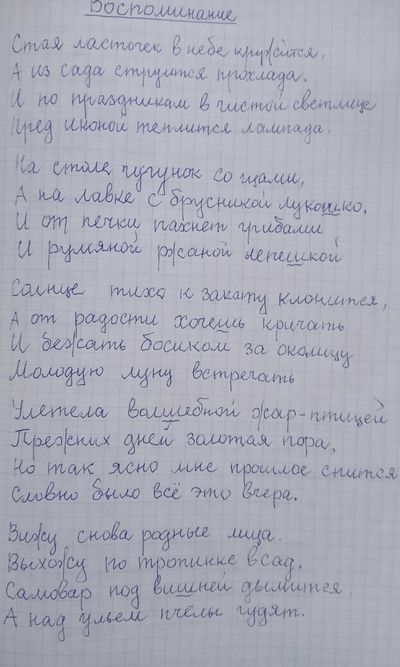 Воспоминание
Стая ласточек в небе кружится,
А из сада струится прохлада.
И по праздникам в чистой светлице
Пред иконой теплится лампада.
На столе чугунок со щами,
А на лавке с брусникой лукошко.
И от печки пахнет грибами
И румяной ржаной лепешкой
Солнце тихо к закату клонится,
А от радости хочешь кричать
И бежать босиком за околицу
Молодую луну встречать
Улетела волшебной жар-птицей
Прежних дней золотая пора,
Но так ясно мне прошлое снится
Словно было всё это вчера.
Вижу снова родные лица.
Выхожу по тропинке в сад.
Самовар под вишней дымится
А над ульем пчелы гудят.